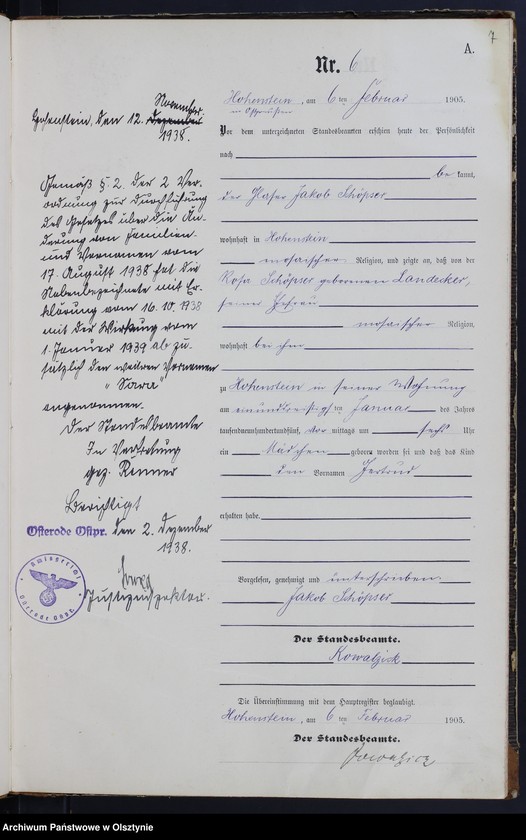 7
A.
Nr. 6
Hohenstein, am 6 ten Februar 1905.
in Ostpreußen
Vor dem unterzeichneten Standesbeamten erschien heute der Persönlichkeit
nach
be kannt,
der Glaser Jakob Schöpser
wohnhaft in Hohenstein
mosaischer Religion, und zeigte an, daß von der
Rosa Schöpser geborenen Landecker,
seiner Ehefrau
mosaischer Religion,
wohnhaft bei ihm
zu Hohenstein in seiner Wohnung
am einunddreißigsten Januar des Jahres
tausendneunhundertundfünf, vor mittags um sechs Uhr
ein Mädchen geboren worden sei und daß das Kind
den Vornamen Gertrud
erhalten habe.
Vorgelesen, genehmigt und unterschrieben.
Jakob Schöpser
Der Standesbeamte.
Kowalzick
Die Übereinstimmung mit dem Hauptregister beglaubigt.
Hohenstein, am 6 ten Februar 1905.
Der Standesbeamte.
Kowalzick
November
Hohenstein, den 12. Dezember
1938.
Gemäß § 2. der 2 Ver-
ordnung zur Durchführung
des Gesetzes über die Än-
derung von Familien-
und Vornamen vom
17. August 1938 hat die
Nebenbezeichnete mit Er-
klärung vom 16. 10. 1938
mit der Wirkung vom
1. Januar 1939 ab zu-
sätzlich den weiteren Vornamen
"Sara"
angenommen.
Der Standesbeamte
In Vertretung
gez. Renner
Berichtigt
Osterode Ostpr. den 2. Dezember
1938.
Justizinspektor.
Amtsgericht
Osterode Ostpr.
Archiwum Państwowe w Olsztynie